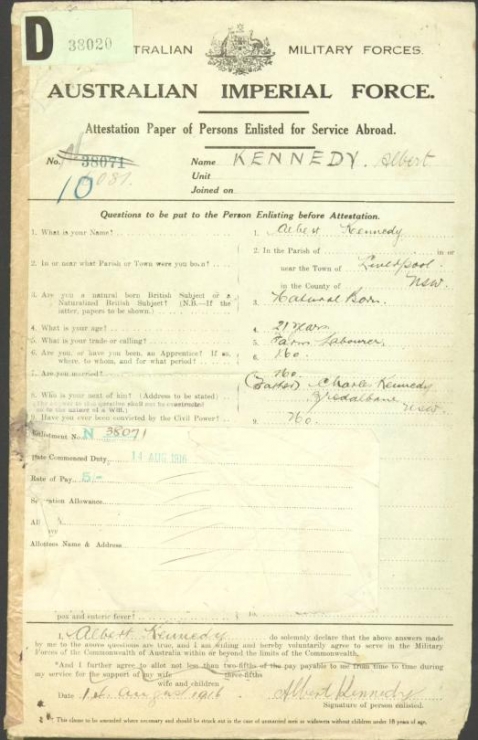 D 38020
AUSTRALIAN MILITARY FORCES.
AUSTRALIAN IMPERIAL FORCE.
Attestation Paper of Persons Enlisted for Service Abroad.
No. 38071 Name KENNEDY. Albert
10 Unit
Joined on
Questions to be put to the Person Enlisting before Attestation.
1. What is your Name? 1. Albert Kennedy
2. In or near what Parish or Town were you born? 2. In the Parish of in or
near the Town of Liverpool
in the County of NSW
3. Are you a natural born British Subject or a 3. Natural Born.
Naturalized British Subject? (N.B.—If the
latter, papers to be shown.)
4. What is your age? 4. 21 years
5. What is your trade or calling? 5. Farm Labourer.
6. Are you, or have you been, an Apprentice? If so, 6. No.
where, to whom, and for what period?
7. Are you married? No.
8. Who is your next of kin? (Address to be stated) (Father) Charles Kennedy
Bredalbane
NSW.
9. Have you ever been convicted by the Civil Power? 9. No.
Enlistment No. N 38071
Date Commenced Duty 14 AUG 1916
Rate of Pay 5/-
Separation Allowance
Allottees Name & Address
pox and enteric fever?
I, Albert Kennedy do solemnly declare that the above answers made
by me to the above questions are true, and I am willing and hereby voluntarily agree to serve in the Military
Forces of the Commonwealth of Australia within or beyond the limits of the Commonwealth.
*And I further agree to allot not less than two-fifths of the pay payable to me from time to time during
three-fifths
my service for the support of my wife
wife and children
Date August 1916 Albert Kennedy
Signature of person enlisted.
* This clause to be amended where necessary and should be struck out in the case of unmarried men or widowers without children under 18 years of age.